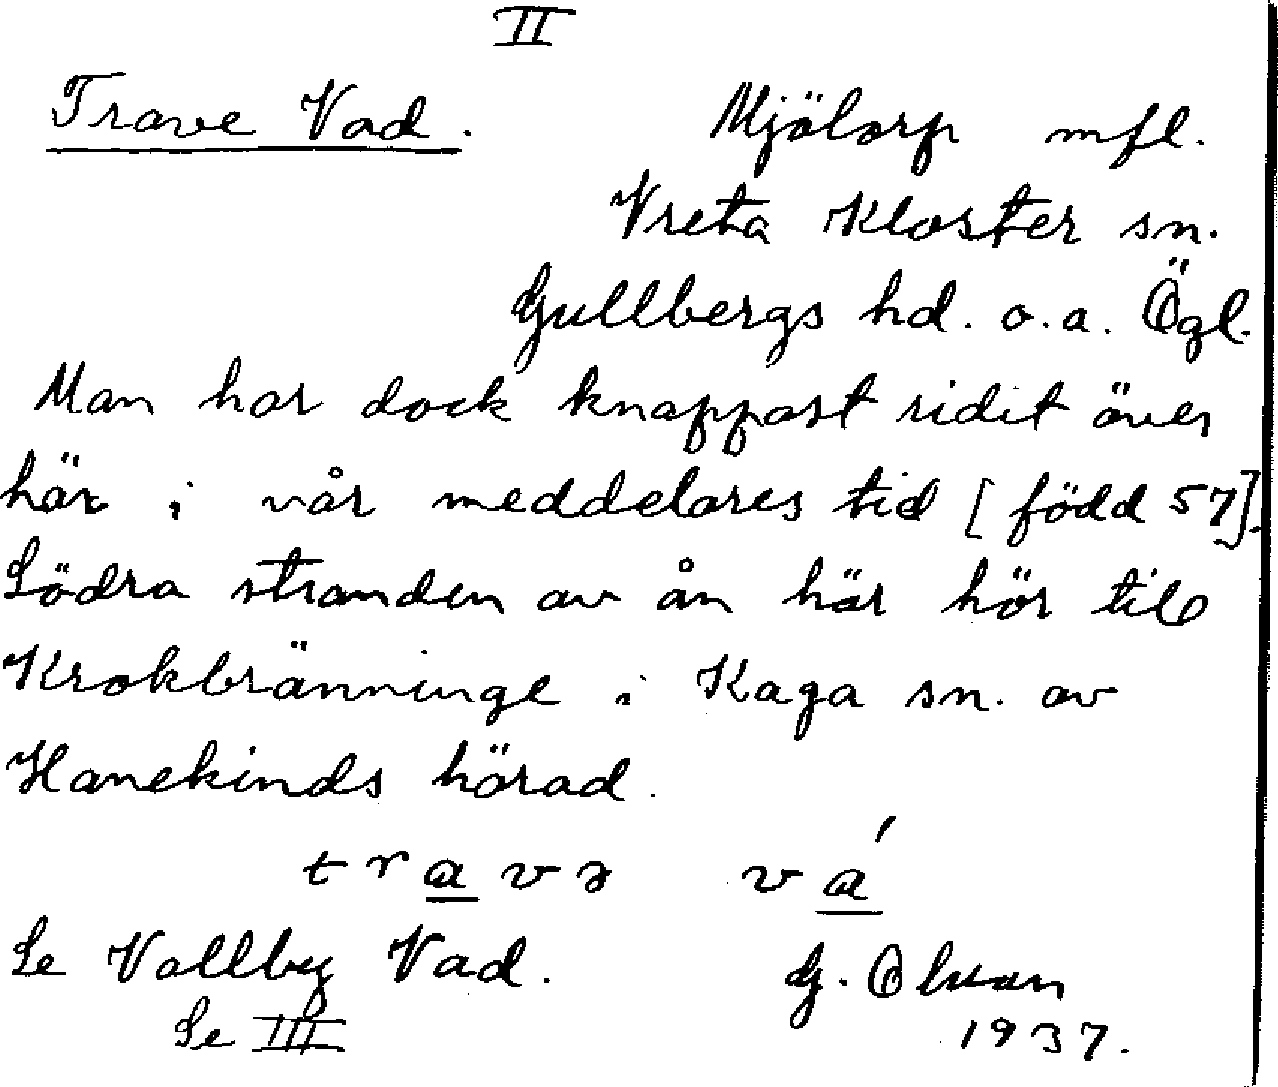 II
Trave Vad.
Mjölorp mfl.
Vreta Kloster sn.
Gullbergs hd. o.a. Ögl.
Man har dock knappast ridit över
här i vår meddelares tid [född 57].
Södra stranden av ån här hör till
Krokbränninge i Kaga sn. av
Hanekinds härad.
travə vá
Se Vallby Vad.
G. Olsson
Se III
1937.